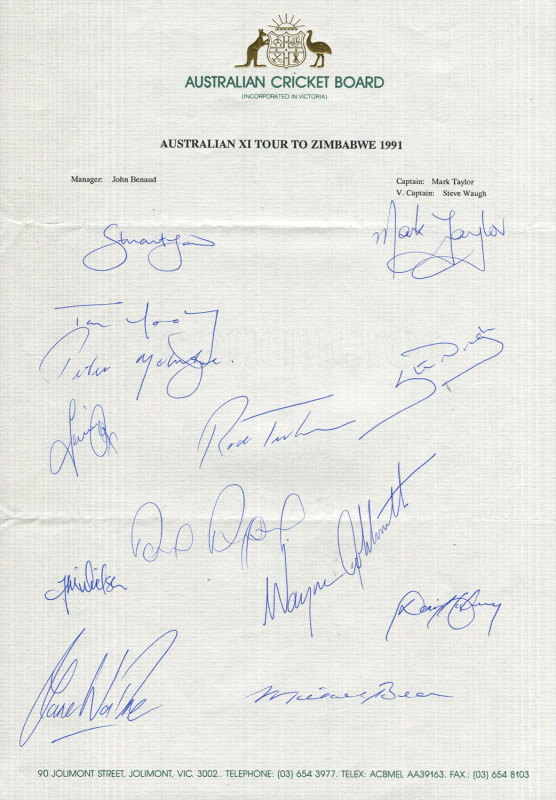 AUSTRALIAN CRICKET BOARD
(INCORPORATED IN VICTORIA)
AUSTRALIAN XI TOUR TO ZIMBABWE 1991
Manager: John Benaud
Captain: Mark Taylor
V. Captain: Steve Waugh
Stuart
Mark Taylor
Tom Moody
Peter
Rod Tucker
Wayne Holdsworth
Shane Warne
Michael Bevan
90 JOLIMONT STREET, JOLIMONT, VIC. 3002.. TELEPHONE: (03) 654 3977. TELEX: ACBMEL AA39163. FAX.: (03) 654 8103